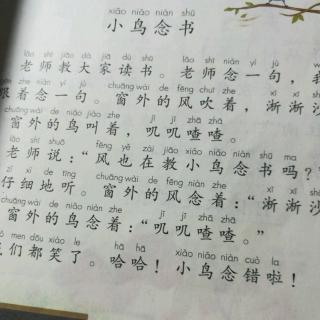 xiǎo niǎo niàn shū
小鸟念书
lǎo shī jiāo dà jiā dú shū lǎo shī niàn yí jù
老师教大家读书。老师念一句，我
zhe niàn yí jù chuāng wài de fēng chuī zhe xī xī
跟着念一句。窗外的风吹着，淅淅沙
chuāng wài de niǎo jiào zhe jī jī zhā zhā
窗外的鸟叫着，叽叽喳喳。
lǎo shī shuō fēng yě zài jiāo xiǎo niǎo niàn shū ma
老师说：“风也在教小鸟念书吗？”
zǐ xì de tīng chuāng wài de fēng niàn zhe xī xī
仔细地听。窗外的风念着：“淅淅沙
chuāng wài de niǎo niàn zhe jī jī zhā zhā
窗外的鸟念着：“叽叽喳喳。”
men dōu xiào le hā hā xiǎo niǎo niàn cuò la
们都笑了。哈哈！小鸟念错啦！